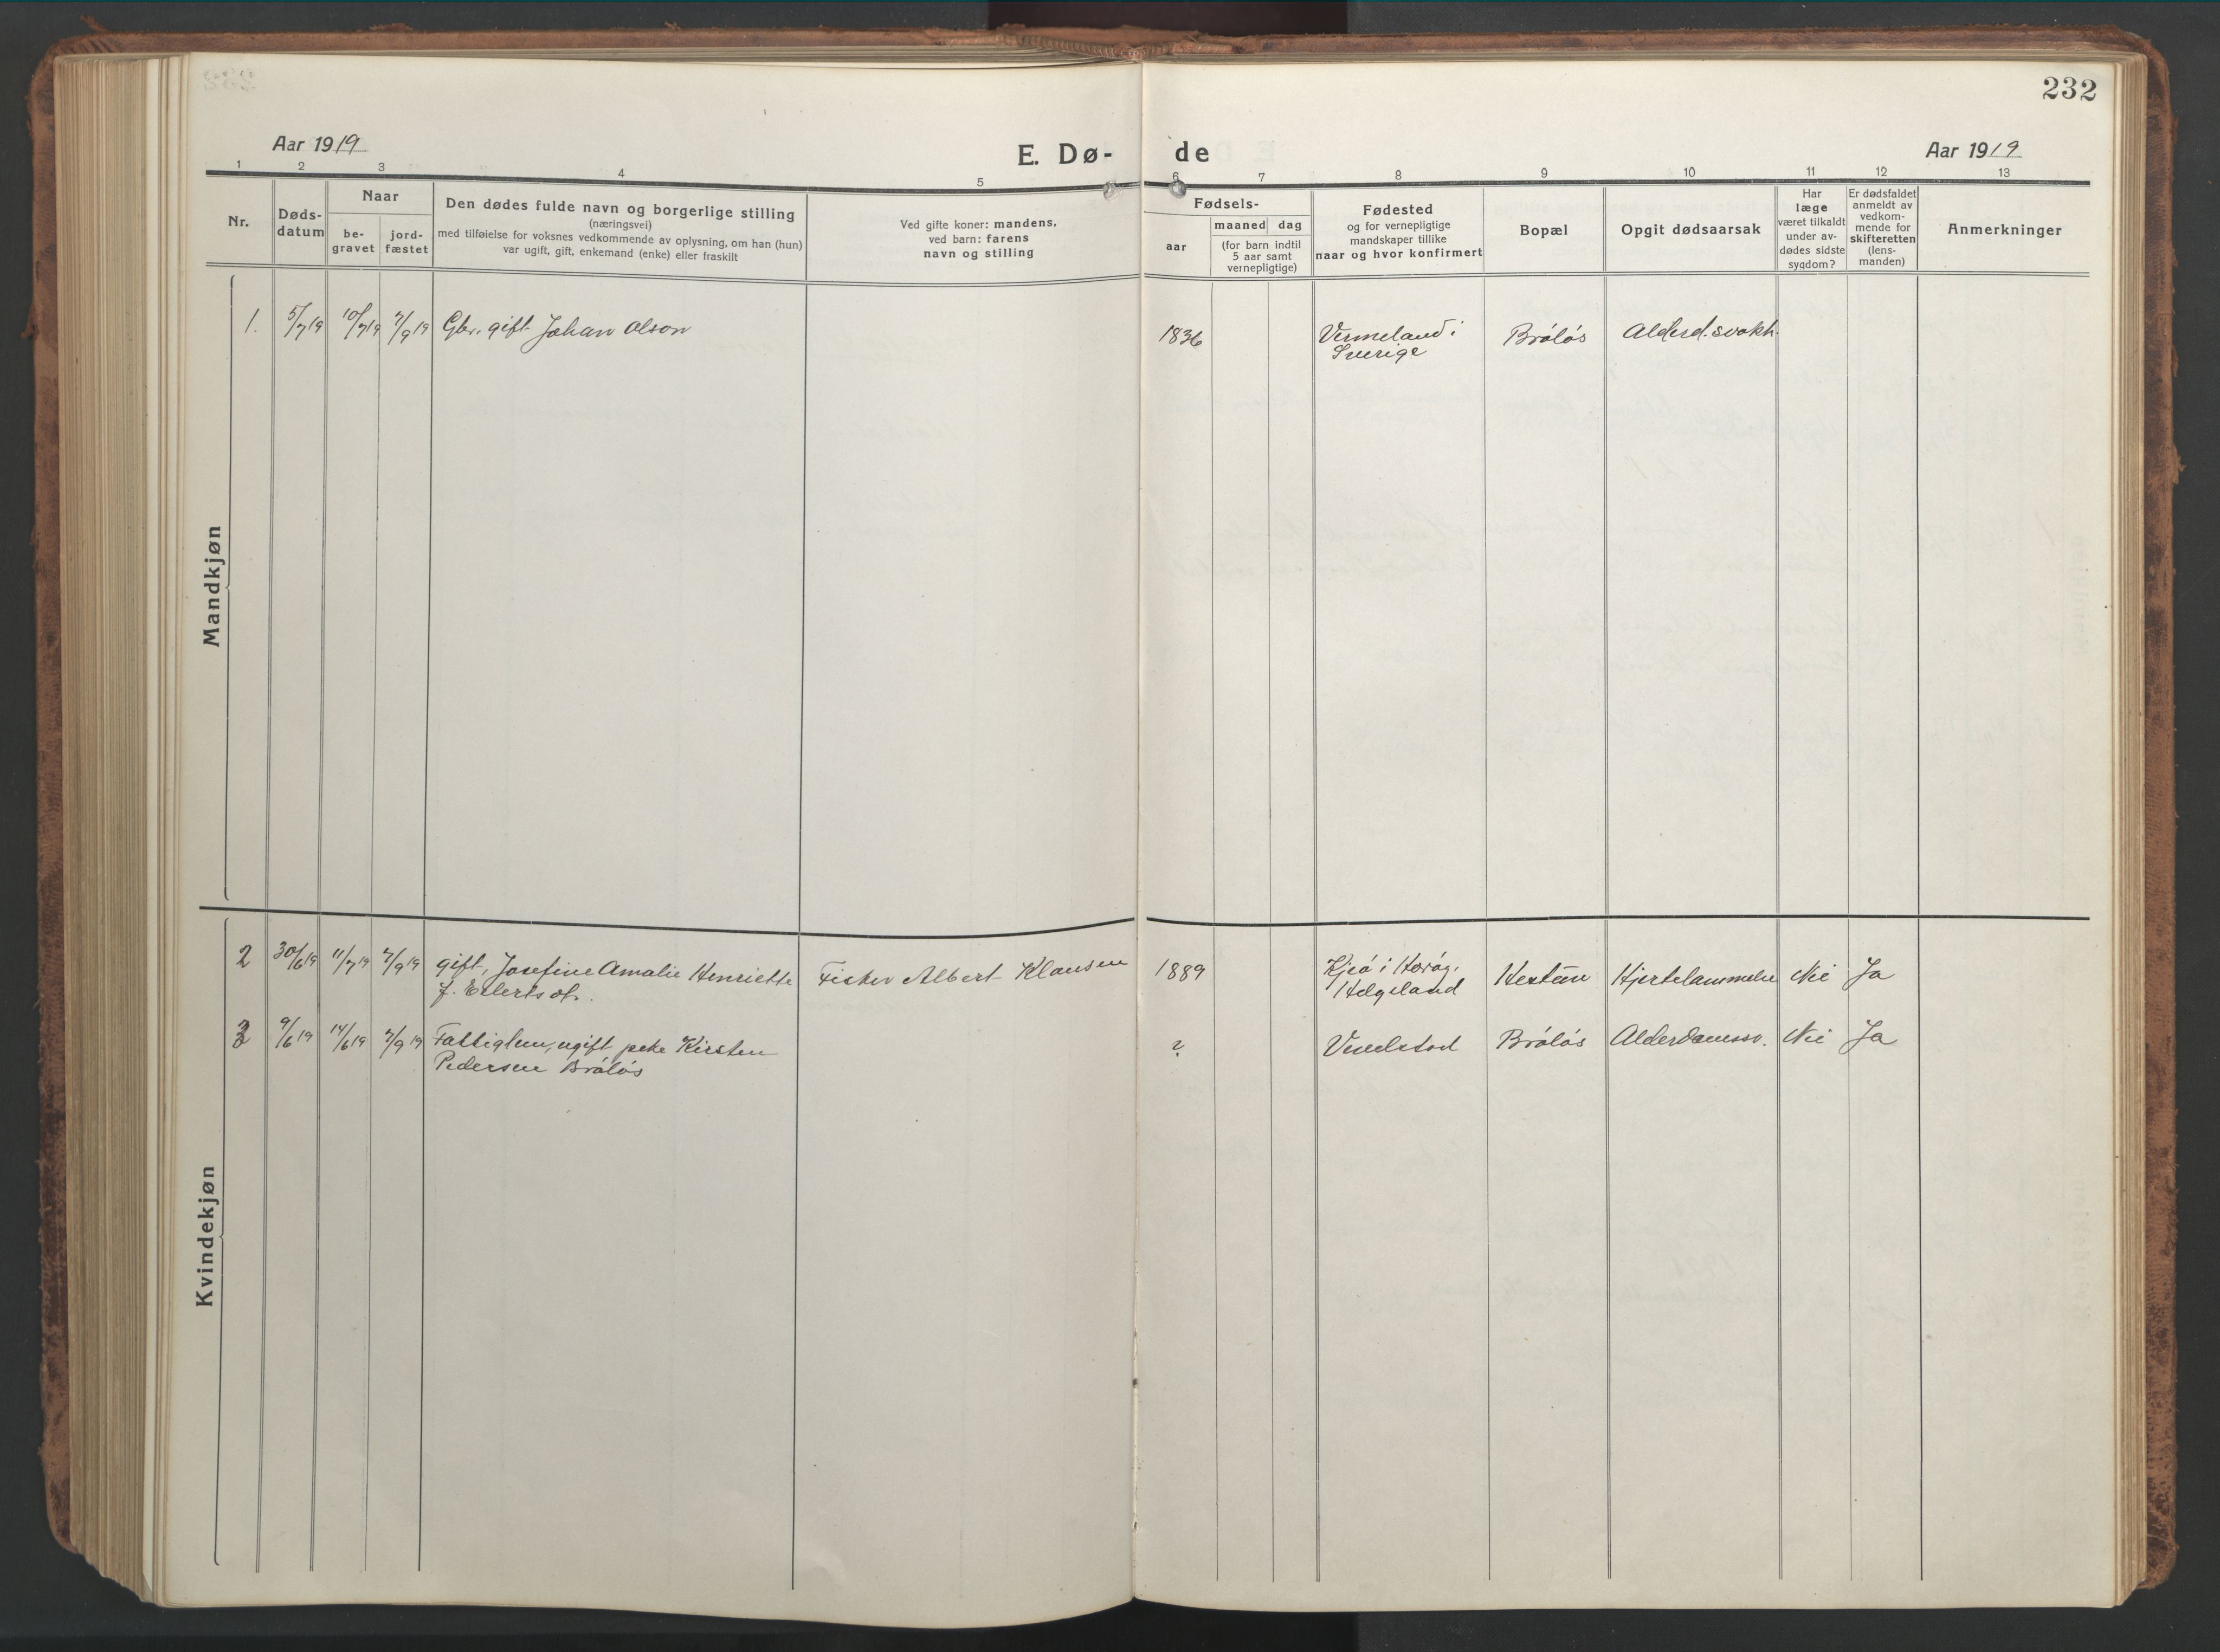 232
Aar 1919
E. Dø-
de
Aar 1919
1 2 3 4 5 6 7 8 9 10 11 12 13
Nr.
Døds-
datum
Naar
be-
gravet
jord-
fæstet
Den dødes fulde navn og borgerlige stilling
(næringsvei)
med tilføielse for voksnes vedkommende av oplysning, om han (hun)
var ugift, gift, enkemand (enke) eller fraskilt
Ved gifte koner: mandens,
ved barn: farens
navn og stilling
Fødsels-
aar
maaned dag
(for barn indtil
5 aar samt
vernepligtige)
Fødested
og for vernepligtige
mandskaper tillike
naar og hvor konfirmert
Bopæl
Opgit dødsaarsak
Har
læge
været tilkaldt
under av-
dødes sidste
sygdom?
Er dødsfaldet
anmeldt av
vedkom-
mende for
skifteretten
(lens-
manden)
Anmerkninger
Mandkjøn
1. 5/7 19 10/7 19 7/9 19 Gbr. gift Johan Olson 1836 Vermeland i Bråløs Alderd.svakh.
Sverige
Kvindekjøn
2 30/6 19 11/7 19 7/9 19 gift, Josefine Amalie Henriette Fisker Albert Klausen 1889 Kjeø i Herøg. Hjertelammelse Nei Ja
f. Eilertsdt. Helgeland
3 9/6 19 14/6 19 7/9 19 Fattiglem, ugift peke Kirsten ? Bråløs Alderdomssv. Nei Ja
Pedersen Bråløs